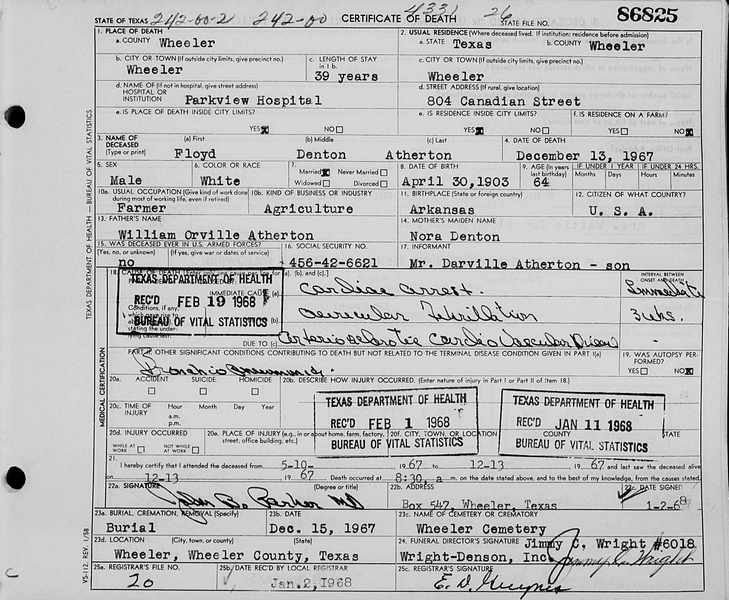 STATE OF TEXAS 242-00-2 242-00 CERTIFICATE OF DEATH 4331 26 STATE FILE NO. 86825
1. PLACE OF DEATH
a. COUNTY Wheeler
2. USUAL RESIDENCE (Where deceased lived. If institution: residence before admission)
a. STATE Texas b. COUNTY Wheeler
b. CITY OR TOWN (If outside city limits, give precinct no.) Wheeler
c. LENGTH OF STAY in 1 b. 39 years
c. CITY OR TOWN (If outside city limits, give precinct no.) Wheeler
d. NAME OF (If not in hospital, give street address) HOSPITAL OR INSTITUTION Parkview Hospital
d. STREET ADDRESS (If rural, give location) 804 Canadian Street
e. IS PLACE OF DEATH INSIDE CITY LIMITS? YES☒ NO☐
e. IS RESIDENCE INSIDE CITY LIMITS? YES☒ NO☐
f. IS RESIDENCE ON A FARM? YES☐ NO☒
3. NAME OF DECEASED (Type or print)
(a) First Floyd (b) Middle Denton (c) Last Atherton
4. DATE OF DEATH December 13, 1967
5. SEX Male
6. COLOR OR RACE White
7. Married☒ Never Married☐ Widowed☐ Divorced☐
8. DATE OF BIRTH April 30,1903
9. AGE (In years last birthday) 64
IF UNDER 1 YEAR Months Days
IF UNDER 24 HRS. Hours Minutes
10a. USUAL OCCUPATION (Give kind of work done during most of working life, even if retired) Farmer
10b. KIND OF BUSINESS OR INDUSTRY Agriculture
11. BIRTHPLACE (State or foreign country) Arkansas
12. CITIZEN OF WHAT COUNTRY? U. S. A.
13. FATHER'S NAME William Orville Atherton
14. MOTHER'S MAIDEN NAME Nora Denton
15. WAS DECEASED EVER IN U.S. ARMED FORCES? (Yes, no, or unknown) (If yes, give war or dates of service) no
16. SOCIAL SECURITY NO. 456-42-6621
17. INFORMANT Mr. Darville Atherton - son
18. CAUSE OF DEATH
(a), (b), and (c).
INTERVAL BETWEEN ONSET AND DEATH
IMMEDIATE CAUSE (a) Cardiac arrest. Immediate
(b) Auricular Fibrillation 3 wks.
DUE TO (c) Arteriosclerotic Cardio Vascular Disease -
TEXAS DEPARTMENT OF HEALTH
REC'D FEB 19 1968
BUREAU OF VITAL STATISTICS
PART II. OTHER SIGNIFICANT CONDITIONS CONTRIBUTING TO DEATH BUT NOT RELATED TO THE TERMINAL DISEASE CONDITION GIVEN IN PART I(a)
Broncho pneumonia.
19. WAS AUTOPSY PERFORMED? YES☐ NO☒
20a. ACCIDENT ☐ SUICIDE ☐ HOMICIDE ☐
20b. DESCRIBE HOW INJURY OCCURRED. (Enter nature of injury in Part I or Part II of Item 18.)
20c. TIME OF INJURY Hour a.m. p.m. Month Day Year
20d. INJURY OCCURRED WHILE AT WORK ☐ NOT WHILE AT WORK ☐
20e. PLACE OF INJURY (e.g., in or about home, farm, factory, street, office building, etc.)
20f. CITY, TOWN, OR LOCATION COUNTY STATE
TEXAS DEPARTMENT OF HEALTH
REC'D FEB 1 1968
BUREAU OF VITAL STATISTICS
TEXAS DEPARTMENT OF HEALTH
REC'D JAN 11 1968
BUREAU OF VITAL STATISTICS
21. I hereby certify that I attended the deceased from 5-10- 1967 to 12-13 1967 and last saw the deceased alive
on 12-13 1967 Death occurred at 8:30 a m. on the date stated above, and to the best of my knowledge, from the causes stated.
22a. SIGNATURE (Degree or title) Parker MD
22b. ADDRESS Box 547, Wheeler, Texas
22c. DATE SIGNED 1-2-68
23a. BURIAL, CREMATION, REMOVAL (Specify) Burial
23b. DATE Dec. 15, 1967
23c. NAME OF CEMETERY OR CREMATORY Wheeler Cemetery
23d. LOCATION (City, town, or county) (State) Wheeler, Wheeler County, Texas
24. FUNERAL DIRECTOR'S SIGNATURE Jimmy C. Wright #6018
Wright-Denson, Inc. Jimmy C. Wright
25a. REGISTRAR'S FILE NO. 20
25b. DATE REC'D BY LOCAL REGISTRAR Jan.2,1968
25c. REGISTRAR'S SIGNATURE
TEXAS DEPARTMENT OF HEALTH — BUREAU OF VITAL STATISTICS
MEDICAL CERTIFICATION
VS-112, REV. 1/58